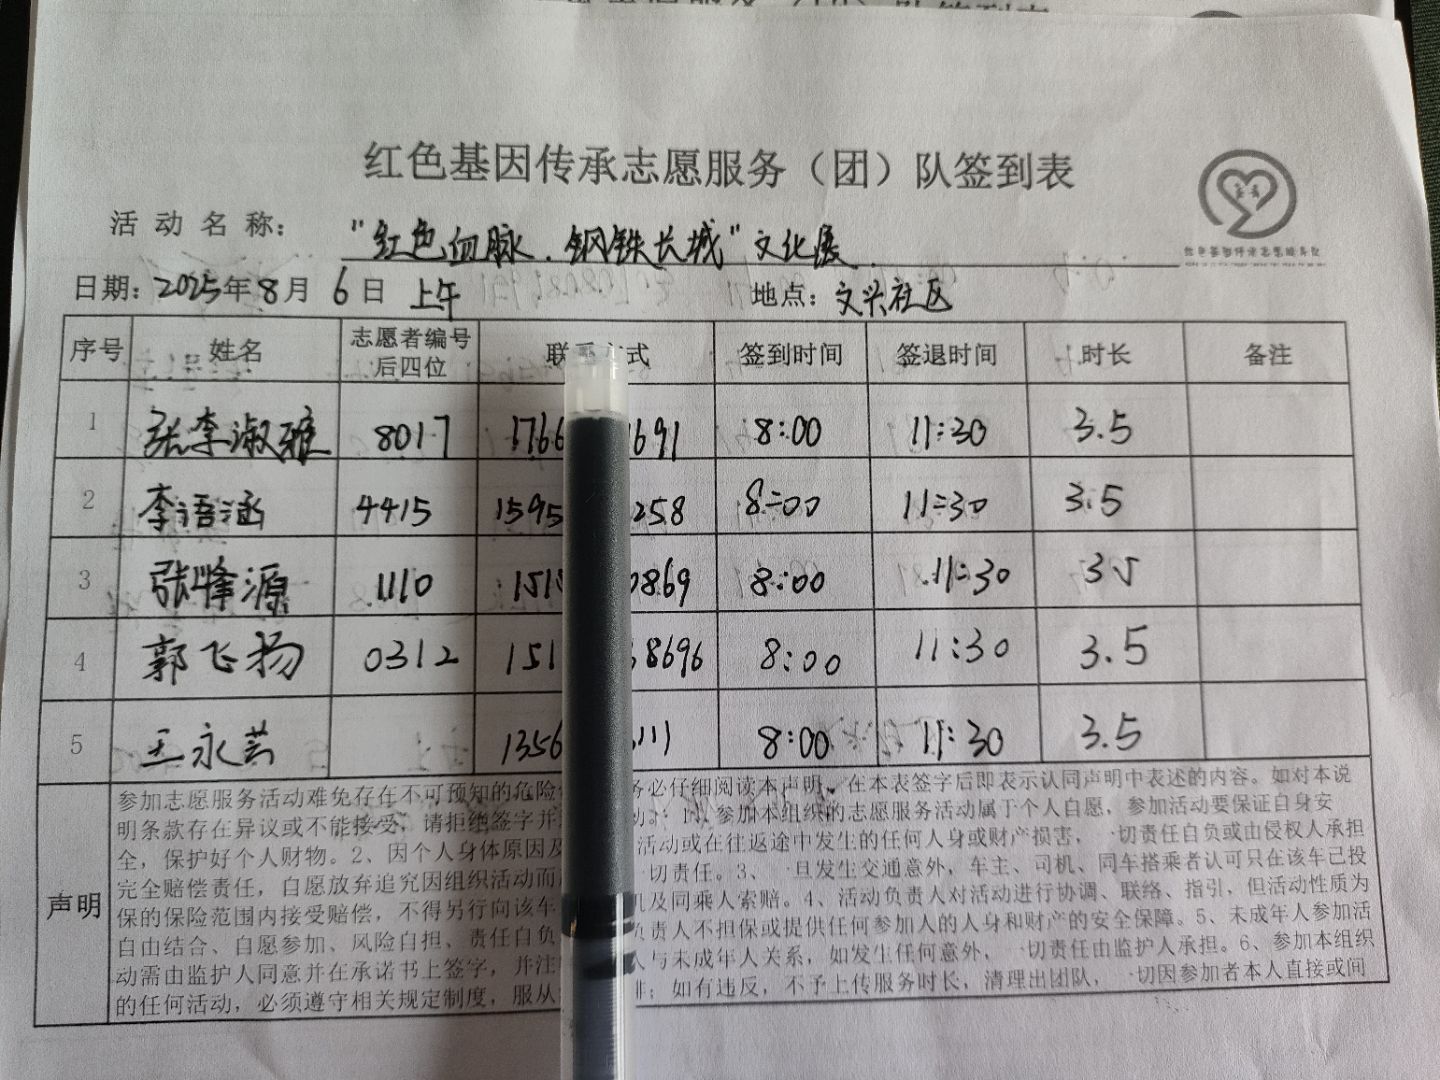 红色基因传承志愿服务（团）队签到表
活动名称：“红色血脉.钢铁长城”文化展.
日期：2025年8月6日 上午 地点：文兴社区
序号 姓名 志愿者编号后四位 联 方式 签到时间 签退时间 时长 备注
1 张李淑雅 8017 1766 691 8:00 11:30 3.5
2 李语涵 4415 1595 258 8:00 11:30 3.5
3 张烽源 1110 151 0869 8:00 11:30 3.5
4 郭飞扬 0312 151 8696 8:00 11:30 3.5
5 王永芸 1356 111 8:00 11:30 3.5
声明
参加志愿服务活动难免存在不可预知的危险 务必仔细阅读本声明，在本表签字后即表示认同声明中表述的内容。如对本说
明条款存在异议或不能接受，请拒绝签字并 动：1、参加本组织的志愿服务活动属于个人自愿，参加活动要保证自身安
全，保护好个人财物。2、因个人身体原因及 活动或在往返途中发生的任何人身或财产损害，一切责任自负或由侵权人承担
完全赔偿责任，自愿放弃追究因组织活动而 一切责任。3、一旦发生交通意外，车主、司机、同车搭乘者认可只在该车已投
保的保险范围内接受赔偿，不得另行向该车 及同乘人索赔。4、活动负责人对活动进行协调、联络、指引，但活动性质为
自由结合、自愿参加、风险自担、责任自负 负责人不担保或提供任何参加人的人身和财产的安全保障。5、未成年人参加活
动需由监护人同意并在承诺书上签字，并注 人与未成年人关系，如发生任何意外，一切责任由监护人承担。6、参加本组织
的任何活动，必须遵守相关规定制度，服从 排；如有违反，不予上传服务时长，清理出团队，一切因参加者本人直接或间